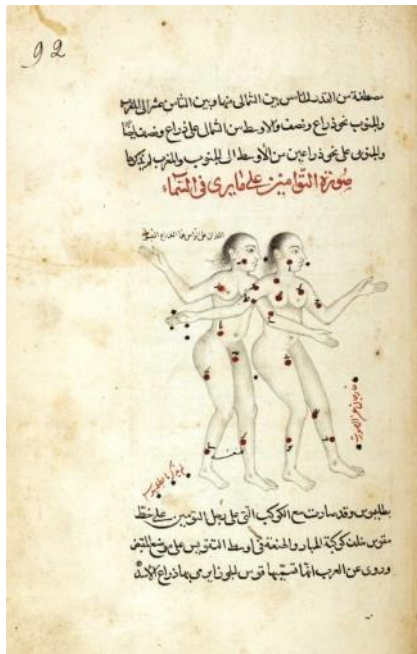 92
مصطفة من القدر الخامس بين الشمالى منها وبين الثامن عشر الى المغرب
والجنوب نحو ذراع ونصف والاوسط من الشمالى على ذراع ونصف ايضا
والجنوبى على نحو ذراعين من الاوسط الى الجنوب والمغرب لم يذكرها
صورة التوامين على ما يرى فى السماء
اللذان على الراس هما الذراع
خارجان عن الصورة
لم يذكرها بطلميوس
بطلميوس وقد صارت مع الكوكب التى على رجل التومين على خط
مقوس خلف كوكبة الجبار والهنعة فى اوسط التقويس على موضع المقبض
وروى عن العرب انها تسميها قوس الجوزا يرمى بها ذراع الاسد